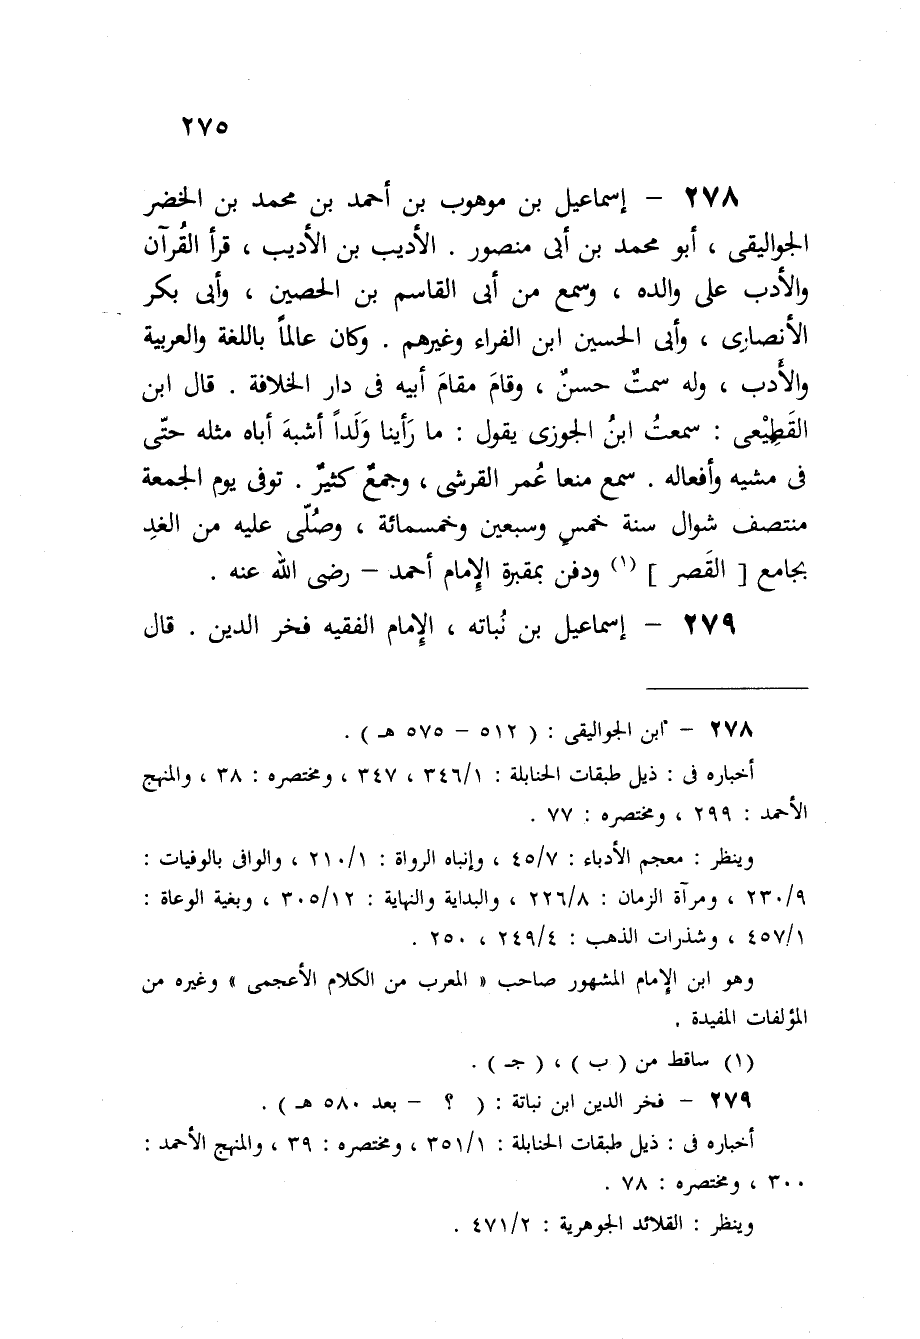 ٢٧٥
٢٧٨ – إسماعيل بن موهوب بن أحمد بن محمد بن الخضر
الجواليقى ، أبو محمد بن أبى منصور . الأديب بن الأديب ، قرأ القُرآن
والأدب على والده ، وسمع من أبى القاسم بن الحصين ، وأبى بكر
الأنصارى ، وأبى الحسين ابن الفراء وغيرهم . وكان عالماً باللغة والعربية
والأَدب ، وله سمتٌ حسنٌ ، وقامَ مقامَ أبيه فى دار الخلافة . قال ابن
القَطِيْعى : سمعتُ ابنُ الجوزى يقول : ما رَأينا وَلَداً أشبهَ أباه مثله حتّى
فى مشيه وأفعاله . سمع منعا عُمر القرشى ، وجمعٌ كثيرٌ . توفى يوم الجمعة
منتصف شوال سنة خمسٍ وسبعين وخمسمائة ، وصُلّى عليه من الغدِ
بجامع [ القَصر ] (١) ودفن بمقبرة الإمام أحمد – رضى الله عنه .
٢٧٩ – إسماعيل بن نُباته ، الإمام الفقيه فخر الدين . قال
٢٧٨ – ابن الجواليقى : ( ٥١٢ – ٥٧٥ هـ ) .
أخباره فى : ذيل طبقات الحنابلة : ٣٤٦/١ ، ٣٤٧ ، ومختصره : ٣٨ ، والمنهج
الأحمد : ٢٩٩ ، ومختصره : ٧٧ .
وينظر : معجم الأدباء : ٤٥/٧ ، وإنباه الرواة : ٢١٠/١ ، والوافى بالوفيات :
٢٣٠/٩ ، ومرآة الزمان : ٢٢٦/٨ ، والبداية والنهاية : ٣٠٥/١٢ ، وبغية الوعاة :
٤٥٧/١ ، وشذرات الذهب : ٢٤٩/٤ ، ٢٥٠ .
وهو ابن الإمام المشهور صاحب « المعرب من الكلام الأعجمى » وغيره من
المؤلفات المفيدة .
(١) ساقط من ( ب ) ، ( جـ ) .
٢٧٩ – فخر الدين ابن نباتة : ( ؟ – بعد ٥٨٠ هـ ) .
أخباره فى : ذيل طبقات الحنابلة : ٣٥١/١ ، ومختصره : ٣٩ ، والمنهج الأحمد :
٣٠٠ ، ومختصره : ٧٨ .
وينظر : القلائد الجوهرية : ٤٧١/٢ .